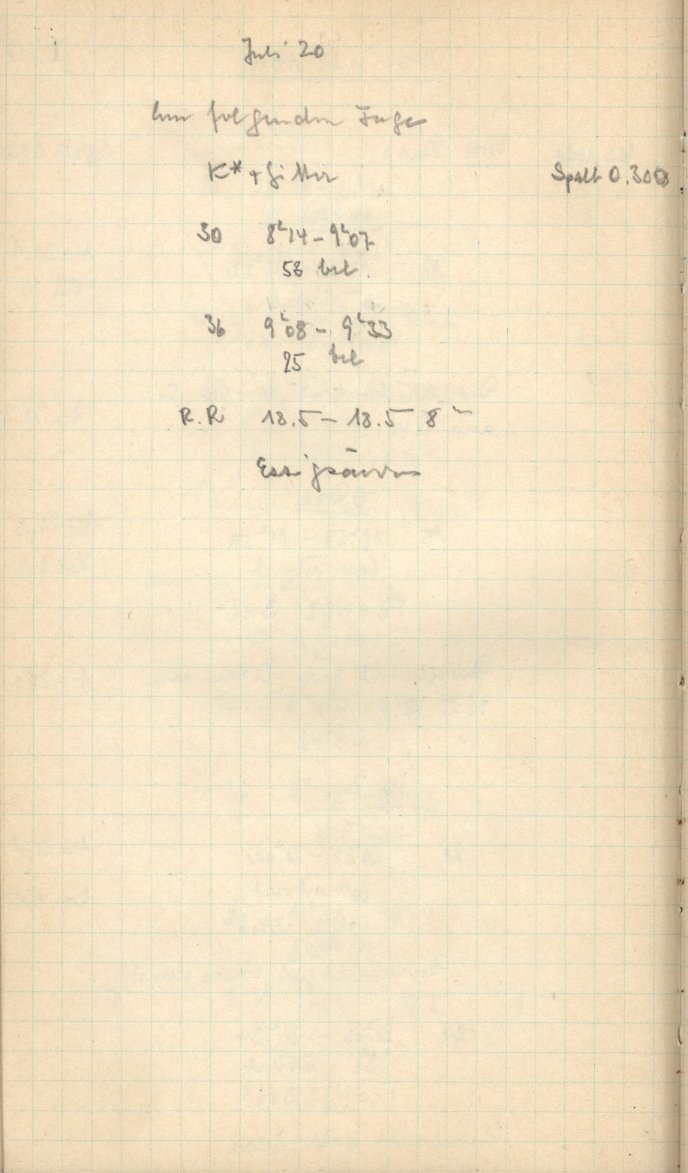 Juli 20
Am folgenden Tage
K* + Gitter Spalt 0.300
30 8h14 – 9h07
53 bel.
36 9h08 – 9h33
25 bel
R.R 18.5 – 18.5 8m
Essigsäure